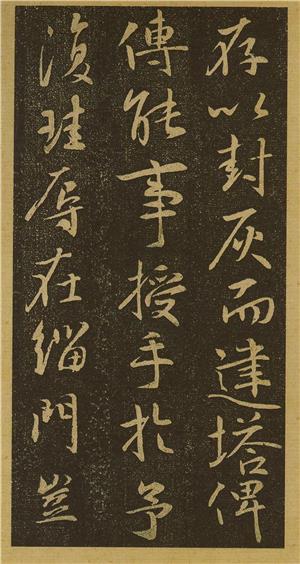 存以封灰而建塔俾
傳能事授手於予
復珪辱在緇門豈